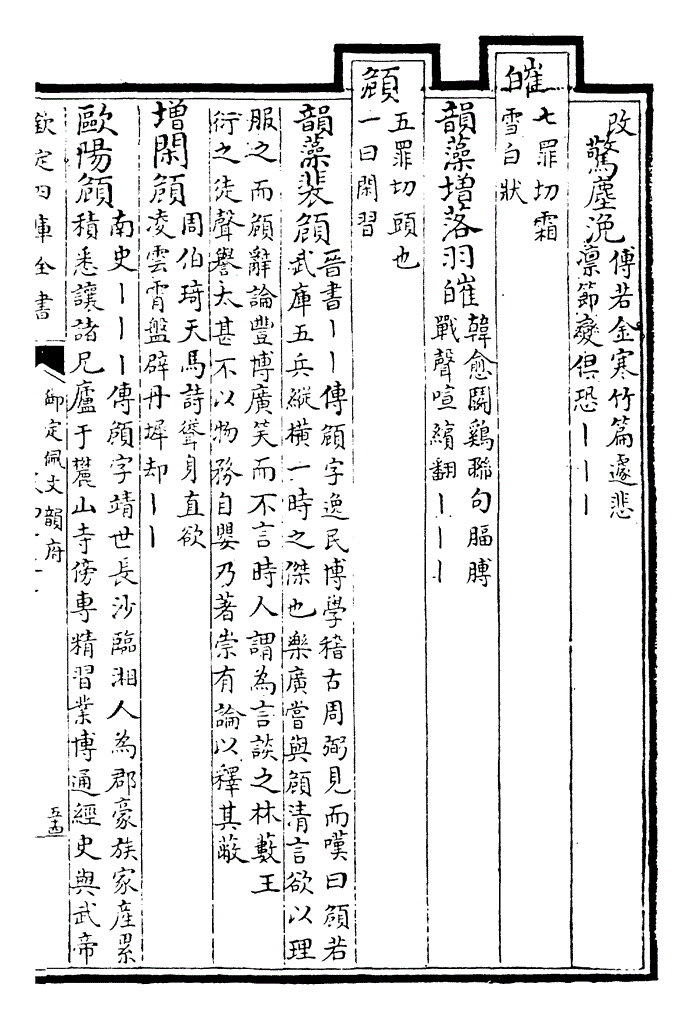 改
驚塵浼
傅若金寒竹篇遽悲
凛節變俱恐丨丨丨
皠
七罪切霜
雪白狀
韻藻增落羽皠
韓愈鬭鷄聯句腷膊
戰聲喧繽翻丨丨丨
頠
五罪切頭也
一曰閑習
韻藻裴頠
晉書丨丨傳頠字逸民博學稽古周弼見而嘆曰頠若
武庫五兵縱横一時之傑也樂廣嘗與頠清言欲以理
服之而頠辭論豐博廣笑而不言時人謂為言談之林藪王
衍之徒聲譽太甚不以物務自嬰乃著崇有論以釋其蔽
增閑頠
周伯琦天馬詩聳身直欲
凌雲霄盤辟丹墀却丨丨
歐陽頠
南史丨丨丨傳頠字靖世長沙臨湘人為郡豪族家産累
積悉讓諸兄廬于麓山寺傍專精習業博通經史與武帝
欽定四庫全書
御定佩文韻府
五十四